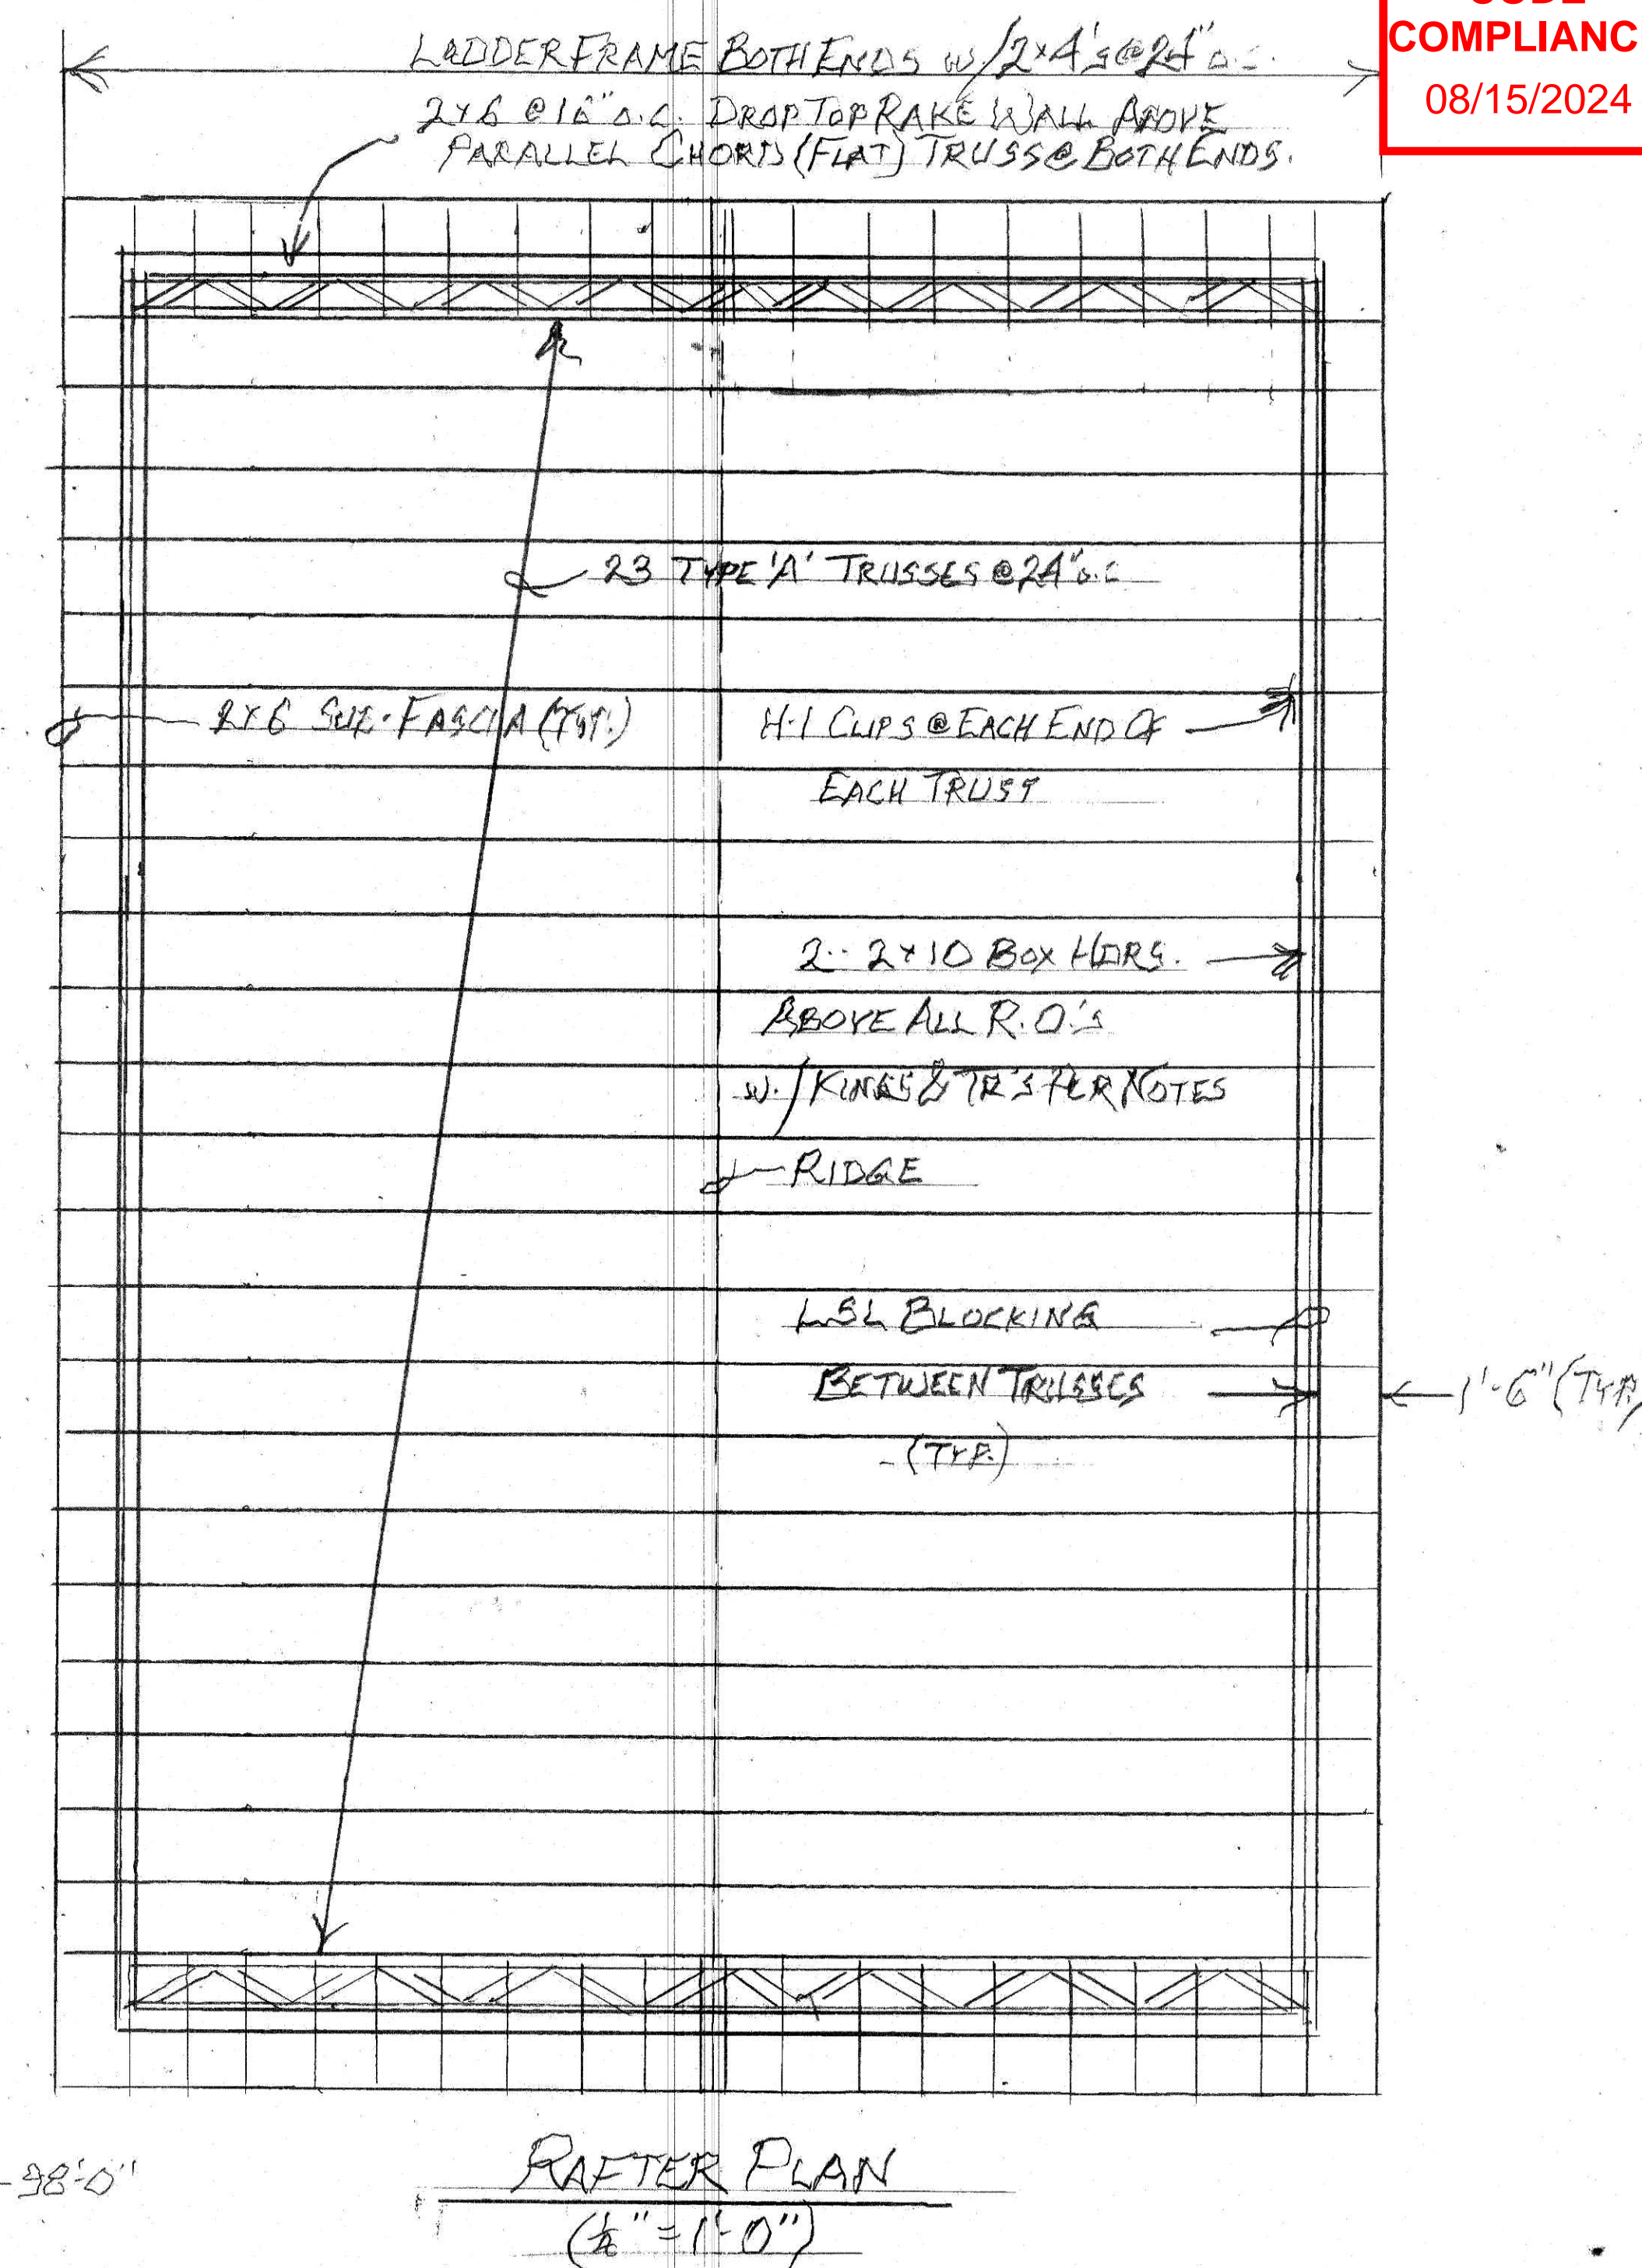 CODE
COMPLIANC
08/15/2024
LADDER FRAME BOTH ENDS W/2x4's@24" O.C.
2x6 @16" O.C. DROP TOP RAKE WALL ABOVE
PARALLEL CHORD (FLAT) TRUSS@BOTH ENDS.
23 TYPE 'A' TRUSSES @24" O.C
2x6 SUB-FASCIA (TYP.)
H-1 CLIPS @ EACH END OF
EACH TRUST
2-2x10 BOX HDRS.
ABOVE ALL R.O.'s
W./KINGS & TR'S PER NOTES
RIDGE
LSL BLOCKING
BETWEEN TRUSSES
(TYP.)
1'-6" (TYP.)
RAFTER PLAN
" = 1'-0")